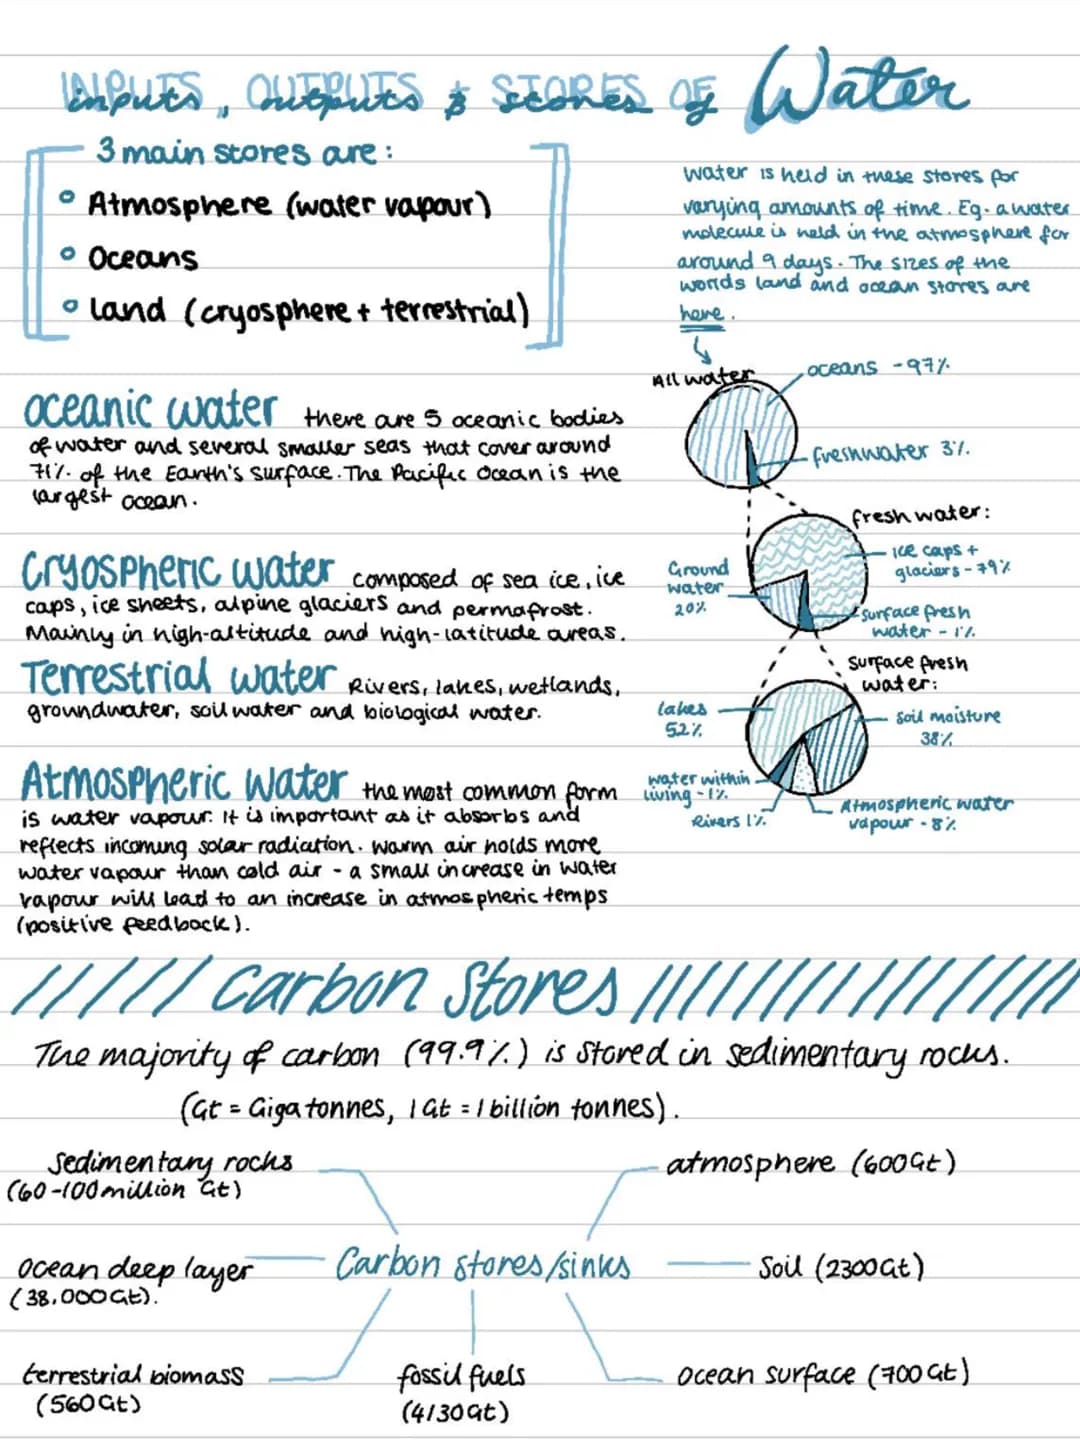 INPUTS, OUTPUTS & STORES OF Water
3 main stores are:
Atmosphere (water vapour)
Oceans
Land (cryosphere + terrestrial)
Water is held in these stores for
varying amounts of time. Eg. a water
molecule is held in the atmosphere for
around 9 days. The sizes of the
worlds land and ocean stores are
here.
All water
oceans - 97%
freshwater 3%.
fresh water:
ice caps +
glaciers - 79%
Ground
water
20%
surface fresh
water - 1%.
Surface fresh
water:
lakes
52%
soil moisture
38%
water within
living - 1%.
Rivers 1%.
Atmospheric water
vapour - 8%
oceanic water there are 5 oceanic bodies
of water and several smaller seas that cover around
71% of the Earth's surface. The Pacific Ocean is the
largest ocean.
Cryospheric water composed of sea ice, ice
caps, ice sheets, alpine glaciers and permafrost.
Mainly in high-altitude and high-latitude areas.
Terrestrial water Rivers, lakes, wetlands,
groundwater, soil water and biological water.
Atmospheric water the most common form
is water vapour. It is important as it absorbs and
reflects incoming solar radiation. Warm air holds more
water vapour than cold air - a small increase in water
vapour will lead to an increase in atmospheric temps
(positive feedback).
Carbon Stores
The majority of carbon (99.9%) is stored in sedimentary rocks.
(Gt = Gigatonnes, 1 Gt = 1 billion tonnes).
Sedimentary rocks
(60-100 million Gt)
atmosphere (600Gt)
ocean deep layer
(38,000Gt).
Carbon stores/sinks
Soil (2300Gt)
terrestrial biomass
(560Gt)
fossil fuels
(4130Gt)
ocean surface (700Gt)